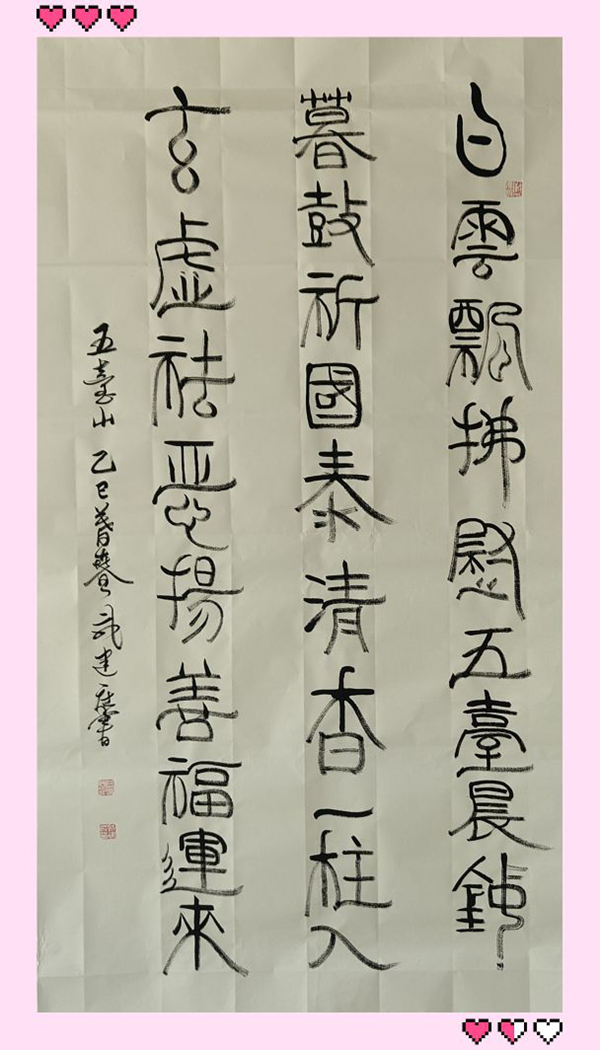 白雲飄拂慰五臺晨鈡
暮鼓祈國泰清香一柱入
玄虛祛惡揚善福運來
五臺山 乙巳暮春 武建書